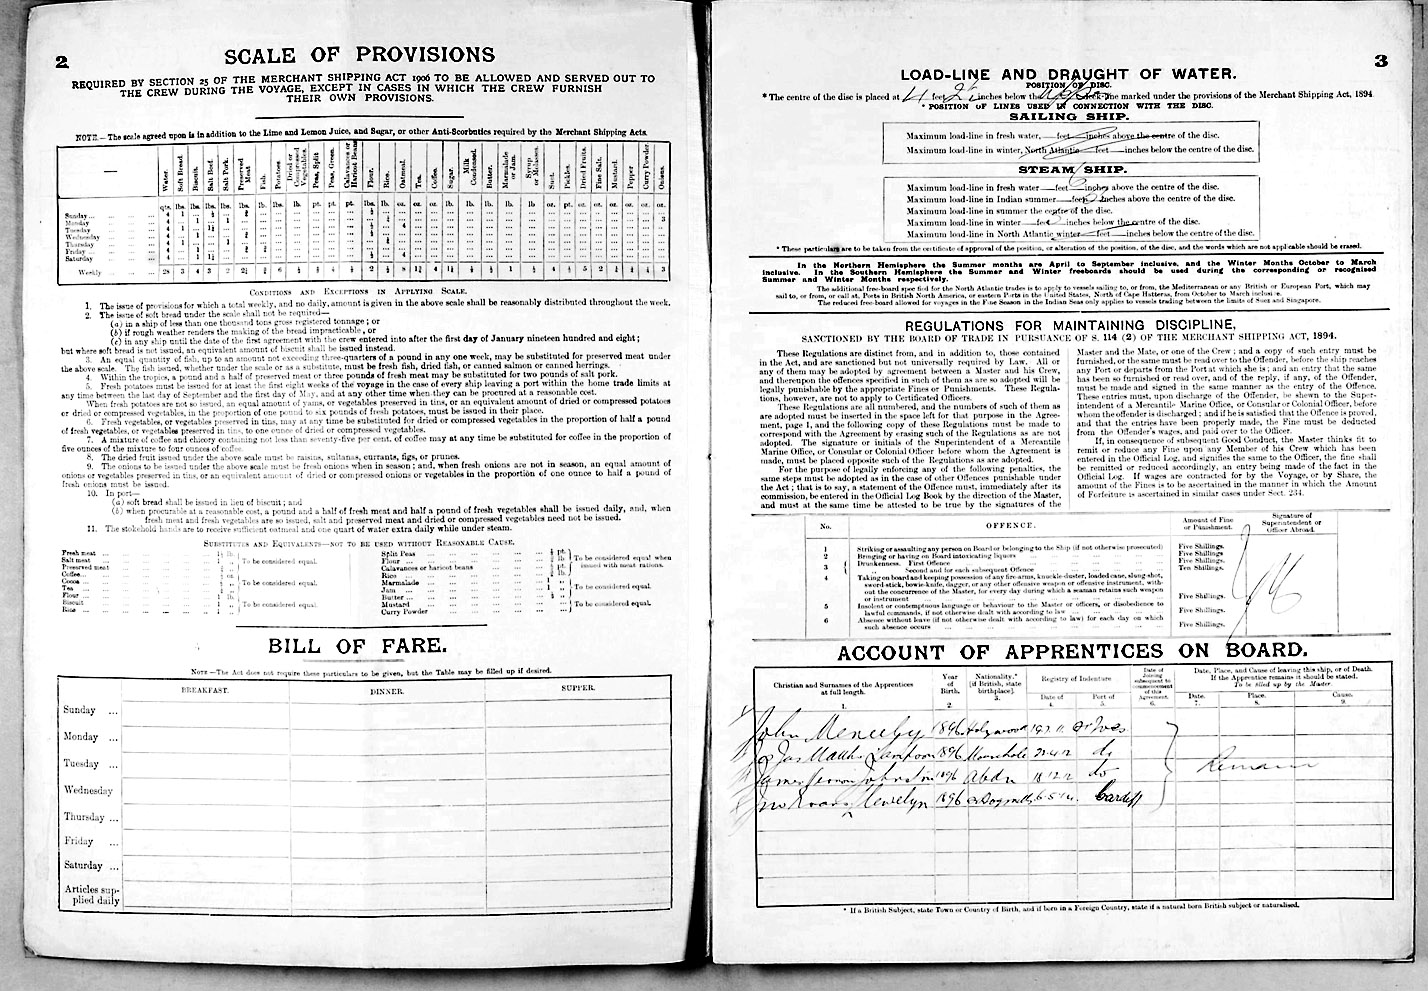 2
SCALE OF PROVISIONS
REQUIRED BY SECTION 25 OF THE MERCHANT SHIPPING ACT 1906 TO BE ALLOWED AND SERVED OUT TO
THE CREW DURING THE VOYAGE, EXCEPT IN CASES IN WHICH THE CREW FURNISH
THEIR OWN PROVISIONS.
NOTE.—The scale agreed upon is in addition to the Lime and Lemon Juice, and Sugar, or other Anti-Scorbutics required by the Merchant Shipping Acts.
Water. Soft Bread. Biscuit. Salt Beef. Salt Pork. Preserved Meat. Fish. Potatoes. Dried or Compressed Vegetables. Peas, Split Peas, Green. Calavances or Haricot Beans Flour. Rice. Oatmeal. Tea. Coffee. Sugar. Milk Condensed. Butter. Marmalade or Jam. Syrup or Molasses. Suet. Pickles. Dried Fruits. Fine Salt. Mustard. Pepper Curry Powder. Onions.
qts. lbs. lbs. lbs. lbs. lbs. lb. lbs. lb. pt. pt. pt. lbs. lb. oz. oz. oz. lb. lb. lb. lb. lb. oz. pt. oz. oz. oz. oz. oz. oz.
Sunday
Monday
Tuesday
Wednesday
Thursday
Friday
Saturday
Weekly
CONDITIONS AND EXCEPTIONS IN APPLYING SCALE.
1. The issue of provisions for which a total weekly, and no daily, amount is given in the above scale shall be reasonably distributed throughout the week.
2. The issue of soft bread under the scale shall not be required—
(a) in a ship of less than one thousand tons gross registered tonnage; or
(b) if rough weather renders the making of the bread impracticable, or
(c) in any ship until the date of the first agreement with the crew entered into after the first day of January nineteen hundred and eight;
but where soft bread is not issued, an equivalent amount of biscuit shall be issued instead.
3. An equal quantity of fish, up to an amount not exceeding three-quarters of a pound in any one week, may be substituted for preserved meat under
the above scale. The fish issued, whether under the scale or as a substitute, must be fresh fish, dried fish, or canned salmon or canned herrings.
4. Within the tropics, a pound and a half of preserved meat or three pounds of fresh meat may be substituted for two pounds of salt pork.
5. Fresh potatoes must be issued for at least the first eight weeks of the voyage in the case of every ship leaving a port within the home trade limits at
any time between the last day of September and the first day of May, and at any other time when they can be procured at a reasonable cost.
When fresh potatoes are not so issued, an equal amount of yams, or vegetables preserved in tins, or an equivalent amount of dried or compressed potatoes
or dried or compressed vegetables, in the proportion of one pound to six pounds of fresh potatoes, must be issued in their place.
6. Fresh vegetables, or vegetables preserved in tins, may at any time be substituted for dried or compressed vegetables in the proportion of half a pound
of fresh vegetables, or vegetables preserved in tins, to one ounce of dried or compressed vegetables.
7. A mixture of coffee and chicory containing not less than seventy-five per cent. of coffee may at any time be substituted for coffee in the proportion of
five ounces of the mixture to four ounces of coffee.
8. The dried fruit issued under the above scale must be raisins, sultanas, currants, figs, or prunes.
9. The onions to be issued under the above scale must be fresh onions when in season; and, when fresh onions are not in season, an equal amount of
onions or vegetables preserved in tins, or an equivalent amount of dried or compressed onions or vegetables in the proportion of one ounce to half a pound of
fresh onions must be issued.
10. In port—
(a) soft bread shall be issued in lieu of biscuit; and
(b) when procurable at a reasonable cost, a pound and a half of fresh meat and half a pound of fresh vegetables shall be issued daily, and, when
fresh meat and fresh vegetables are so issued, salt and preserved meat and dried or compressed vegetables need not be issued.
11. The stokehold hands are to receive sufficient oatmeal and one quart of water extra daily while under steam.
SUBSTITUTES AND EQUIVALENTS—NOT TO BE USED WITHOUT REASONABLE CAUSE.
Fresh meat
Salt meat
Preserved meat
To be considered equal.
Coffee
Cocoa
Tea
To be considered equal.
Flour
Biscuit
Rice
To be considered equal.
Split Peas
Flour
Calavances or haricot beans
Rice
To be considered equal when issued with meat rations.
Marmalade
Jam
Butter
To be considered equal.
Mustard
Curry Powder
To be considered equal.
BILL OF FARE.
NOTE—The Act does not require these particulars to be given, but the Table may be filled up if desired.
BREAKFAST. DINNER. SUPPER.
Sunday ...
Monday ...
Tuesday ...
Wednesday
Thursday ...
Friday ...
Saturday ...
Articles sup-
plied daily
3
LOAD-LINE AND DRAUGHT OF WATER.
POSITION OF DISC.
* The centre of the disc is placed at 4 feet 2½ inches below the upper deck-line marked under the provisions of the Merchant Shipping Act, 1894
* POSITION OF LINES USED IN CONNECTION WITH THE DISC.
SAILING SHIP.
Maximum load-line in fresh water, feet inches above the centre of the disc.
Maximum load-line in winter, North Atlantic feet inches below the centre of the disc.
STEAM SHIP.
Maximum load-line in fresh water feet 6 inches above the centre of the disc.
Maximum load-line in Indian summer feet inches above the centre of the disc.
Maximum load-line in summer the centre of the disc.
Maximum load-line in winter feet inches below the centre of the disc.
Maximum load-line in North Atlantic winter feet inches below the centre of the disc.
* These particulars are to be taken from the certificate of approval of the position, or alteration of the position, of the disc, and the words which are not applicable should be erased.
In the Northern Hemisphere the Summer months are April to September inclusive, and the Winter Months October to March
inclusive. In the Southern Hemisphere the Summer and Winter freeboards should be used during the corresponding or recognised
Summer and Winter Months respectively.
The additional free-board specified for the North Atlantic trades is to apply to vessels sailing to, or from, the Mediterranean or any British or European Port, which may
sail to, or from, or call at, Ports in British North America, or eastern Ports in the United States, North of Cape Hatteras, from October to March inclusive.
The reduced free-board allowed for voyages in the Fine Season in the Indian Seas only applies to vessels trading between the limits of Suez and Singapore.
REGULATIONS FOR MAINTAINING DISCIPLINE,
SANCTIONED BY THE BOARD OF TRADE IN PURSUANCE OF S. 114 (2) OF THE MERCHANT SHIPPING ACT, 1894.
These Regulations are distinct from, and in addition to, those contained
in the Act, and are sanctioned but not universally required by Law. All or
any of them may be adopted by agreement between a Master and his Crew,
and thereupon the offences specified in such of them as are so adopted will be
legally punishable by the appropriate Fines or Punishments. These Regula-
tions, however, are not to apply to Certificated Officers.
These Regulations are all numbered, and the numbers of such of them as
are adopted must be inserted in the space left for that purpose in the Agree-
ment, page 1, and the following copy of these Regulations must be made to
correspond with the Agreement by erasing such of the Regulations as are not
adopted. The signature or initials of the Superintendent of a Mercantile
Marine Office, or Consular or Colonial Officer before whom the Agreement is
made, must be placed opposite such of the Regulations as are adopted.
For the purpose of legally enforcing any of the following penalties, the
same steps must be adopted as in the case of other Offences punishable under
the Act; that is to say, a statement of the Offence must, immediately after its
commission, be entered in the Official Log Book by the direction of the Master,
and must at the same time be attested to be true by the signatures of the
Master and the Mate, or one of the Crew; and a copy of such entry must be
furnished, or the same must be read over to the Offender, before the ship reaches
any Port or departs from the Port at which she is; and an entry that the same
has been so furnished or read over, and of the reply, if any, of the Offender,
must be made and signed in the same manner as the entry of the Offence.
These entries must, upon discharge of the Offender, be shewn to the Super-
intendent of a Mercantile Marine Office, or Consular or Colonial Officer, before
whom the Offender is discharged; and if he is satisfied that the Offence is proved,
and that the entries have been properly made, the Fine must be deducted
from the Offender's wages, and paid over to the Officer.
If, in consequence of subsequent Good Conduct, the Master thinks fit to
remit or reduce any Fine upon any Member of his Crew which has been
entered in the Official Log, and signifies the same to the Officer, the fine shall
be remitted or reduced accordingly, an entry being made of the fact in the
Official Log. If wages are contracted for by the Voyage, or by Share, the
amount of the Fines is to be ascertained in the manner in which the Amount
of Forfeiture is ascertained in similar cases under Sect. 234.
No. OFFENCE. Amount of Fine or Punishment. Signature of Superintendent or Officer Abroad.
1 Striking or assaulting any person on Board or belonging to the Ship (if not otherwise prosecuted) Five Shillings.
2 Bringing or having on Board intoxicating liquors Five Shillings.
3 Drunkenness. First Offence Five Shillings.
Second and for each subsequent Offence Ten Shillings.
4 Taking on board and keeping possession of any fire-arms, knuckle-duster, loaded cane, slung-shot,
sword-stick, bowie-knife, dagger, or any other offensive weapon or offensive instrument, with-
out the concurrence of the Master, for every day during which a seaman retains such weapon
or instrument Five Shillings.
5 Insolent or contemptuous language or behaviour to the Master or officers, or disobedience to
lawful commands, if not otherwise dealt with according to law Five Shillings.
6 Absence without leave (if not otherwise dealt with according to law) for each day on which
such absence occurs Five Shillings.
ACCOUNT OF APPRENTICES ON BOARD.
Christian and Surnames of the Apprentices at full length. 1. Year of Birth. 2. Nationality.* [if British, state birthplace]. 3. Registry of Indenture Date of 4. Port of 5. Date of Joining subsequent to commencement of this Agreement. 6. Date, Place, and Cause of leaving this ship, or of Death. If the Apprentice remains it should be stated. To be filled up by the Master. Date. 7. Place. 8. Cause. 9.
John 1896 Holywood St Ives
Jas 1896 Mousehole 22.4.12 do
James Vernon Johnston 1896 Abdn 18.12.12 do
Jno Evans Llewelyn 1896 St Dogmells Cardiff
Remain
* If a British Subject, state Town or Country of Birth, and if born in a Foreign Country, state if a natural born British subject or naturalised.